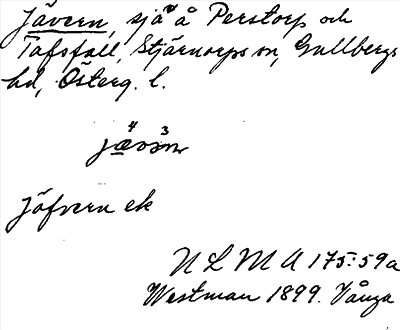 Jävern, sjö å Perstorp och
Tafsfall, Stjärnorps sn, Gullbergs
hd, Österg. l.
4 3
jævæn
Jöfvern ek
N L M A 175:59a
Westman 1899. Vånga